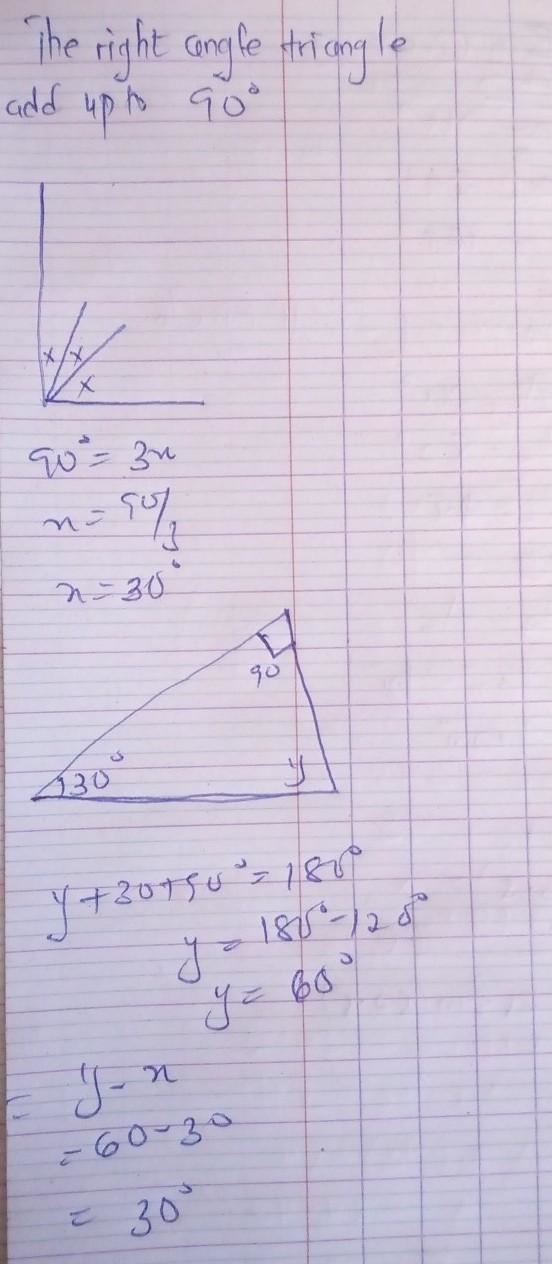 The right angle triangle
add up to 90°
x x
x
90° = 3x
x = 90/3
x = 30°
90
30°
y
y + 30 + 90° = 180°
y = 180° - 120°
y = 60°
= y - x
= 60 - 30
= 30°